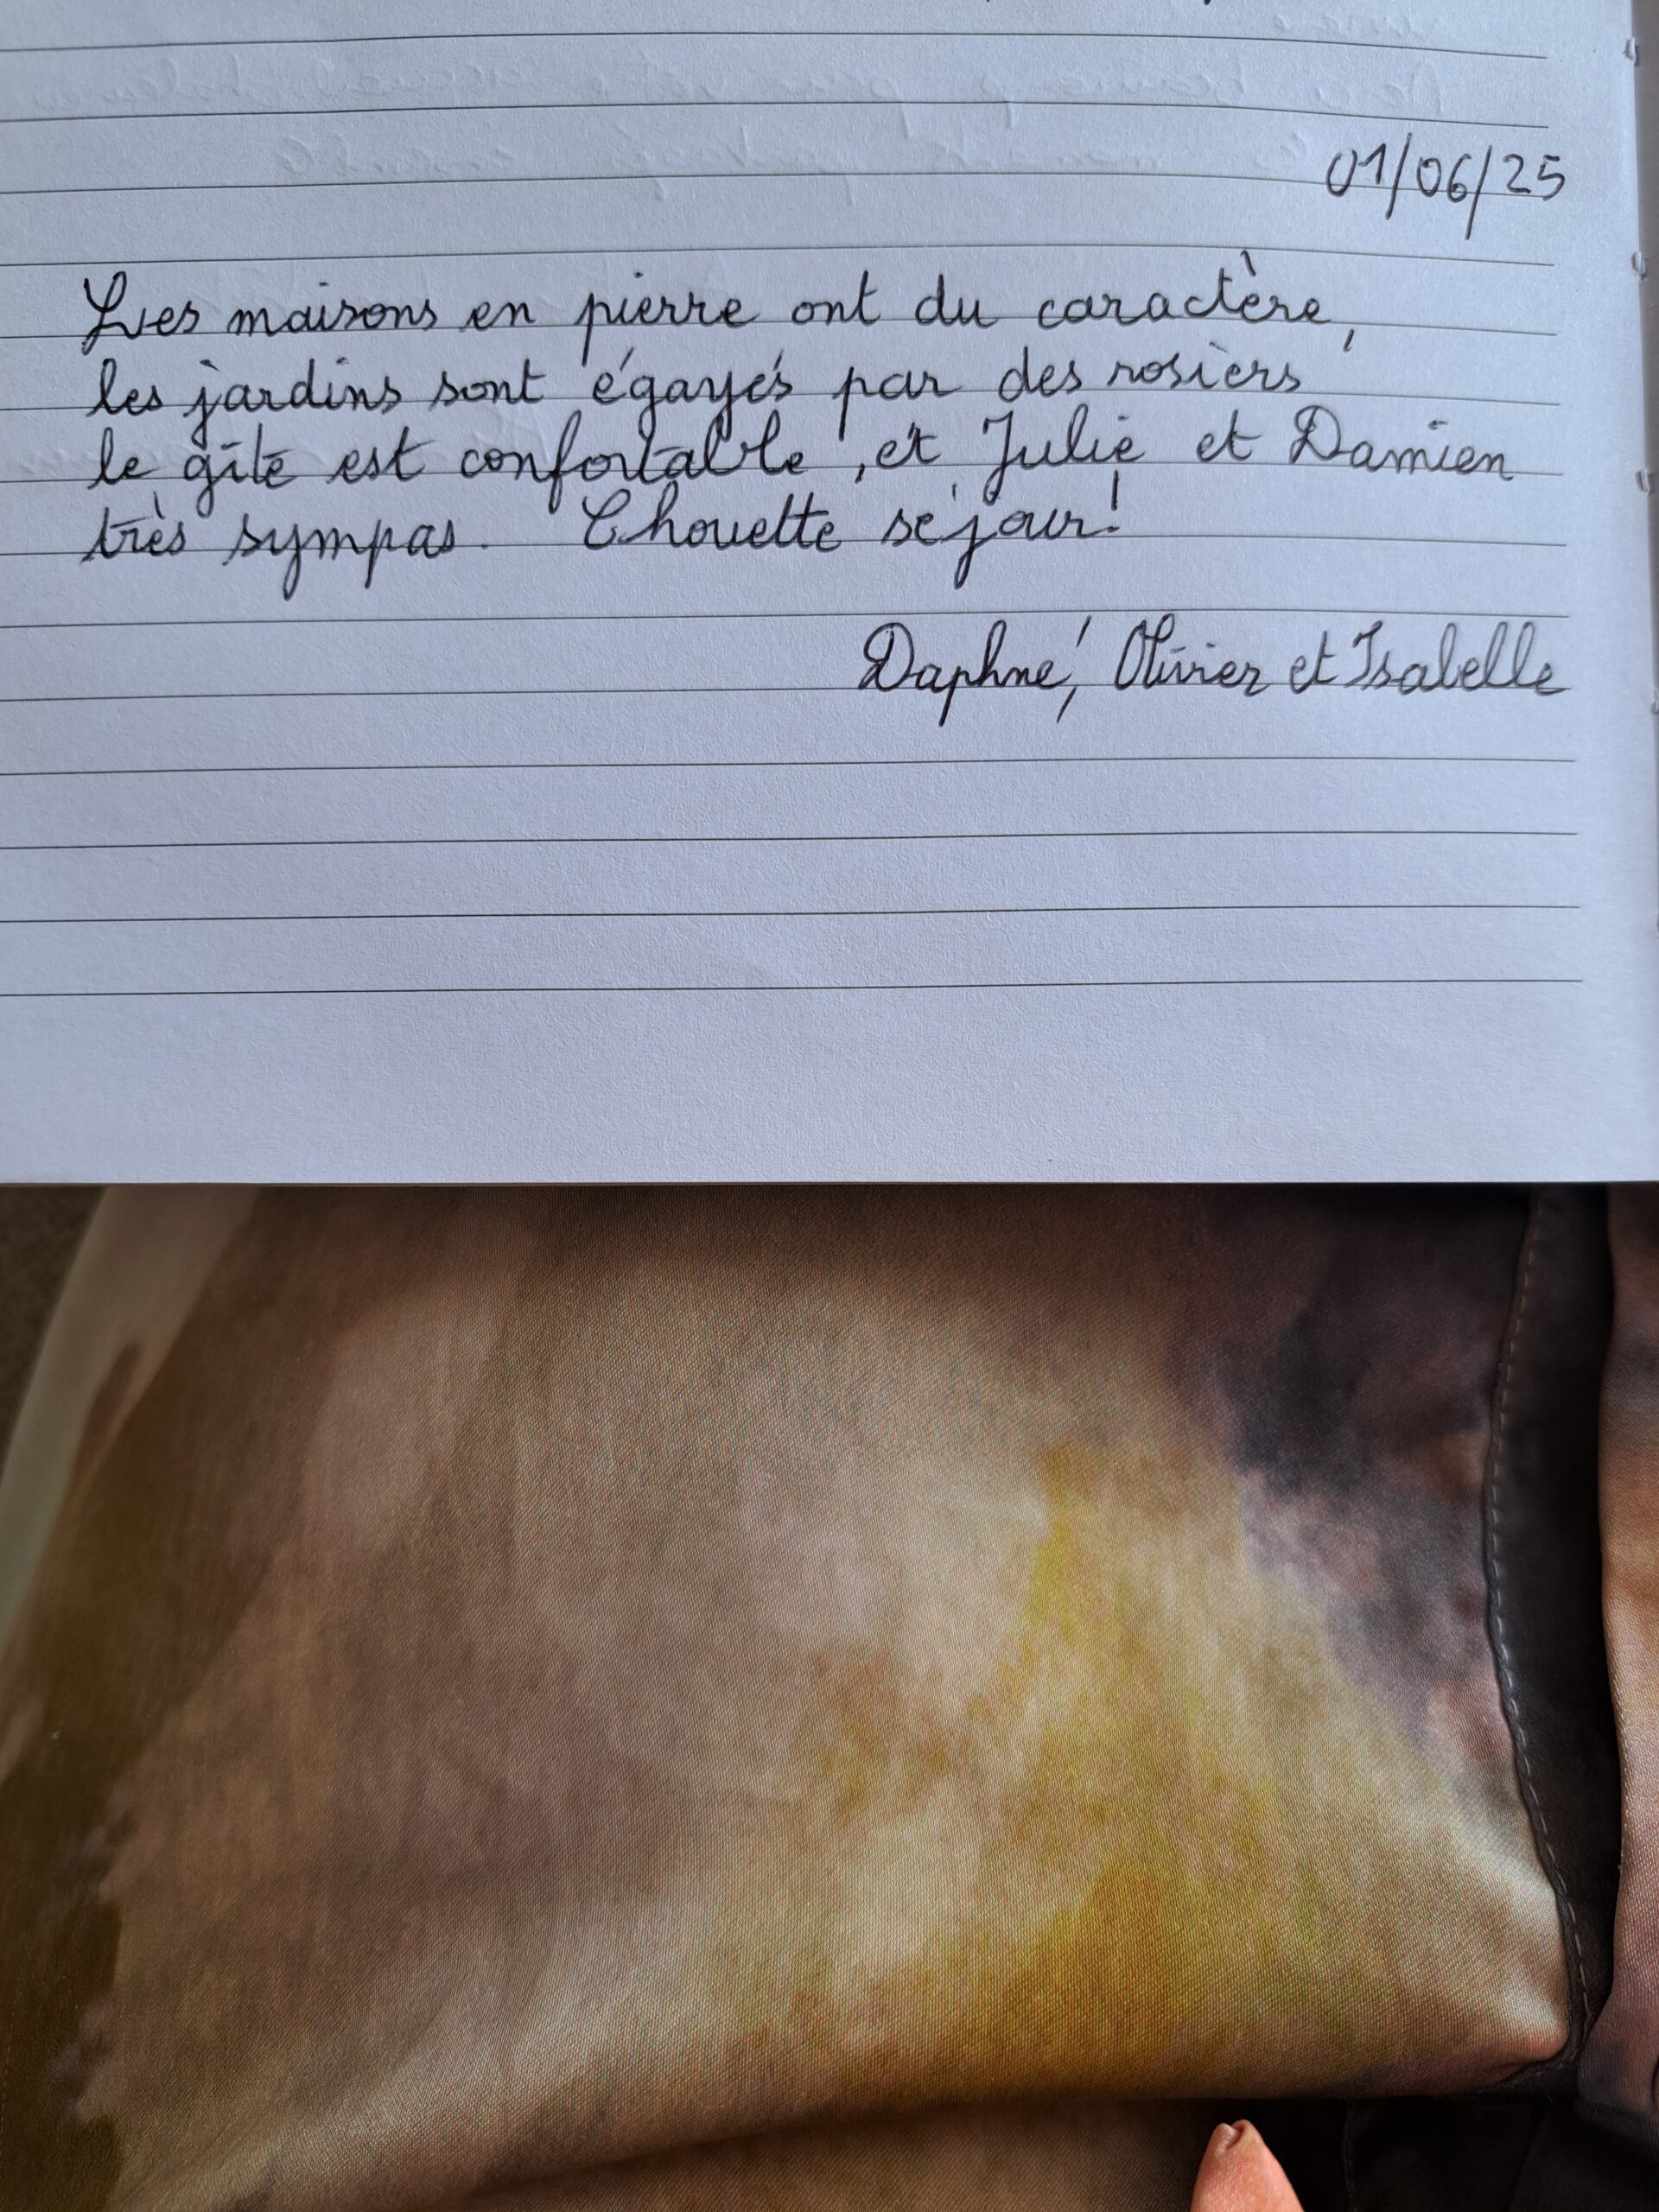 01/06/25
Les maisons en pierre ont du caractère,
les jardins sont égayés par des rosiers
le gîte est confortable, et Julie et Damien
très sympas. Chouette séjour!
Daphné, Olivier et Isabelle